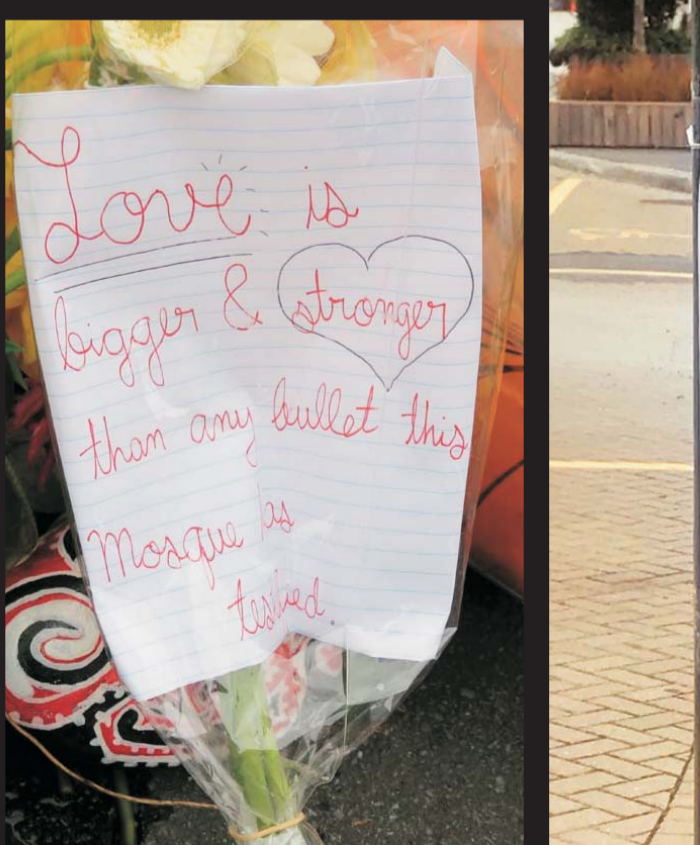 Love is
bigger & stronger
than any bullet this
Mosque as